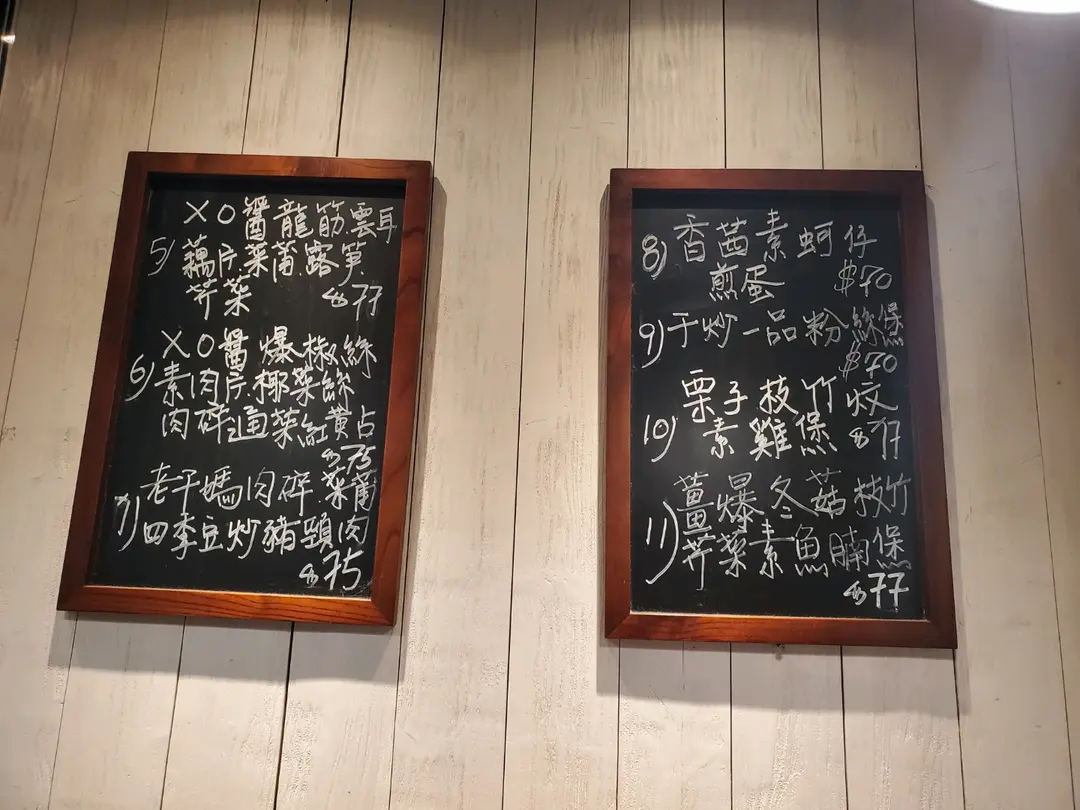 XO醬龍筋雲耳
5) 藕片菜甫露笋
芥菜 $77
XO醬爆椒絲
6) 素肉片椰菜絲
肉碎通菜紅黃占
$75
老干媽肉碎菜甫
7) 四季豆炒豬頸肉
$75
8) 香茜素蚵仔
煎蛋 $70
9) 干炒一品粉絲煲
$70
栗子枝竹炆
10) 素雞煲 $77
薑爆冬菇枝竹
11) 芥菜素魚腩煲
$77